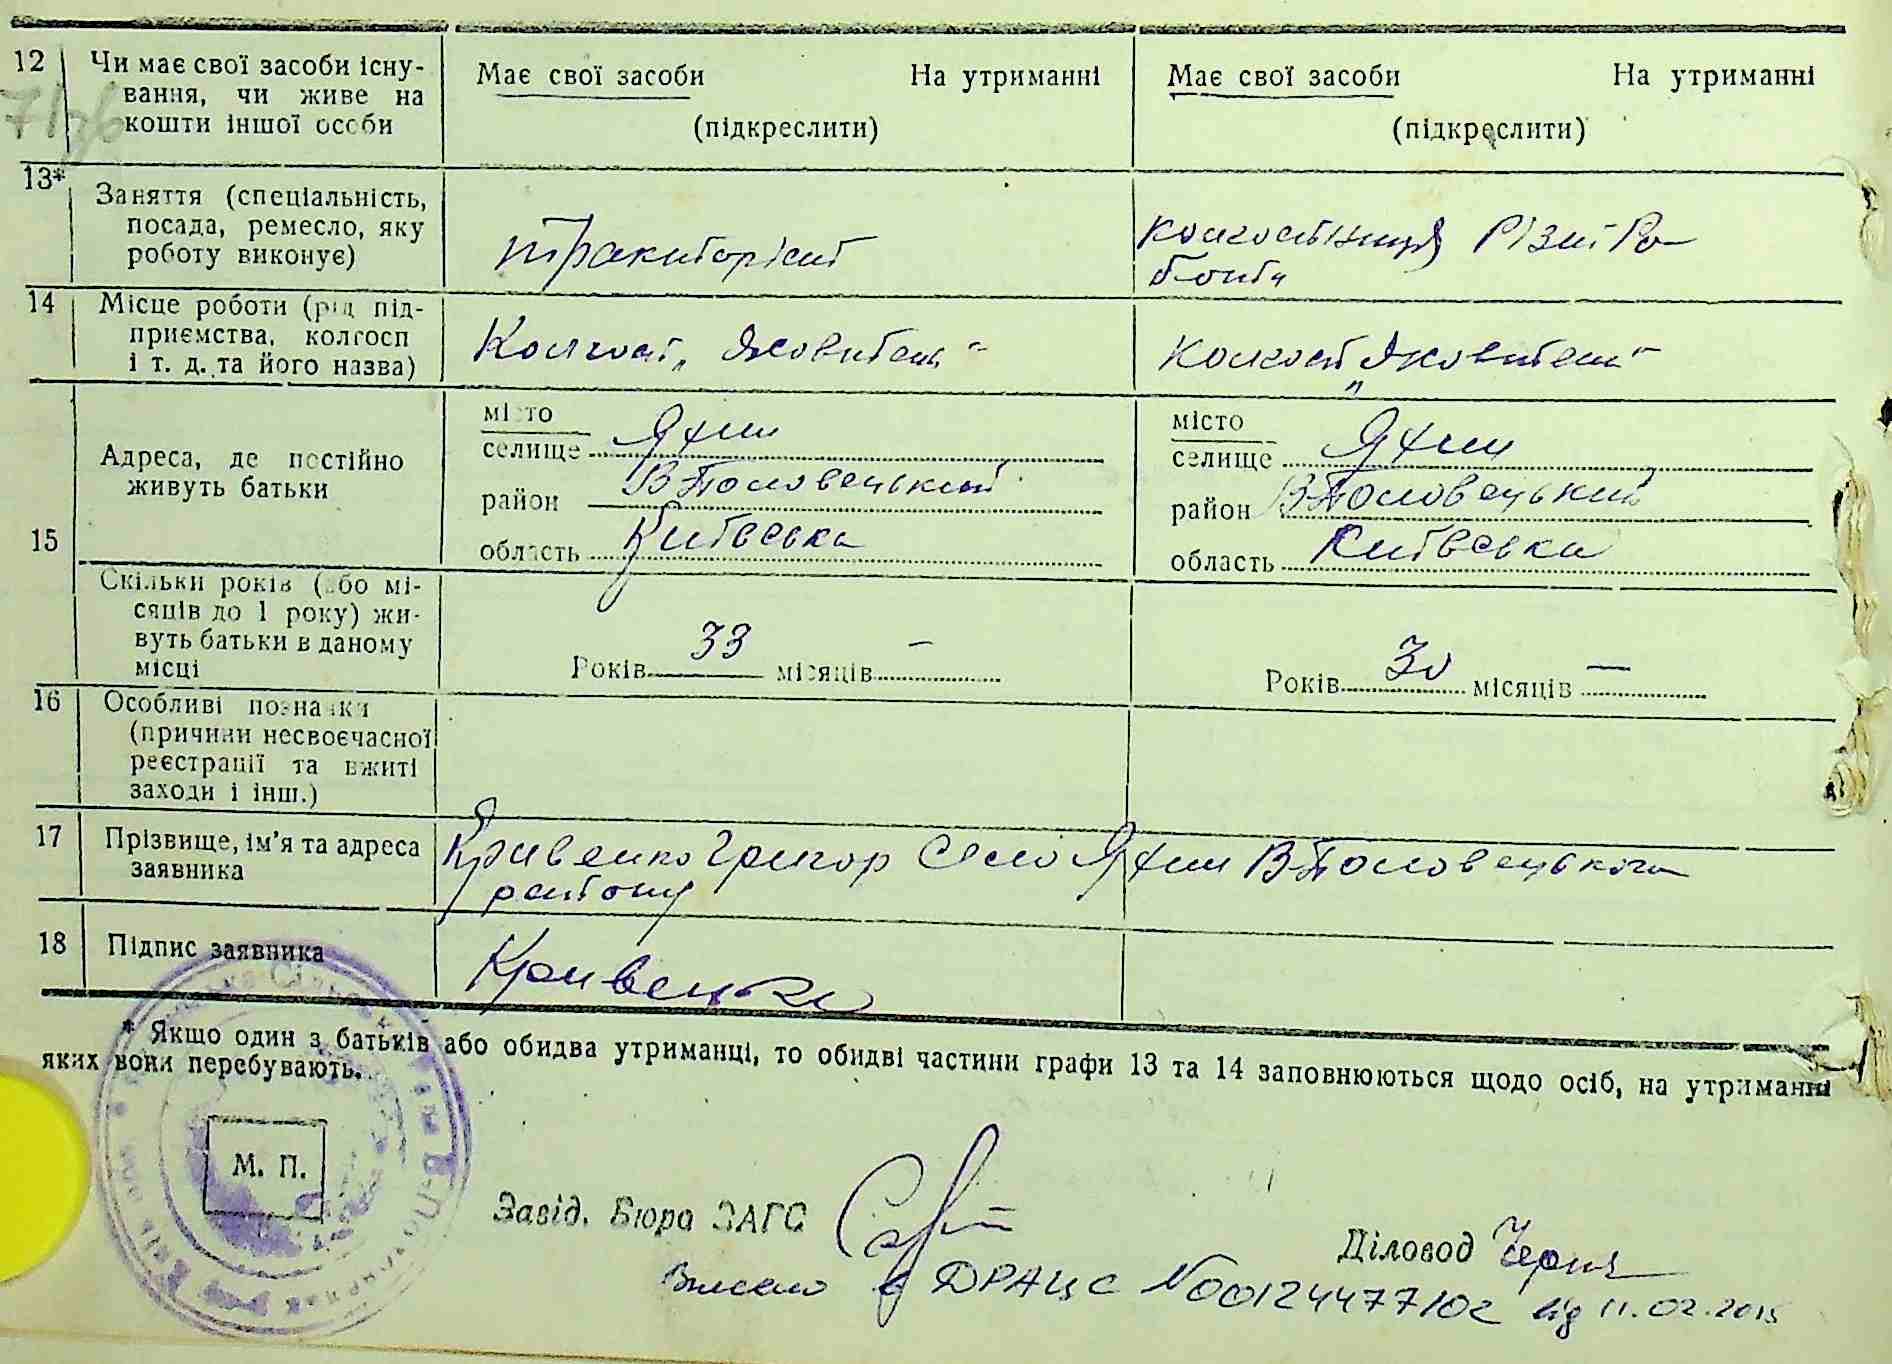 12 Чи має свої засоби існу-
вання, чи живе на
кошти іншої особи
Має свої засоби На утриманні
(підкреслити)
Має свої засоби На утриманні
(підкреслити)
13* Заняття (спеціальність,
посада, ремесло, яку
роботу виконує)
тракторіст
колгоспниця Різні Ро-
боти
14 Місце роботи (рід під-
приємства, колгосп
і т. д. та його назва)
Колгосп „Яховитець"
колгосп „Яховитець"
15 Адреса, де постійно
живуть батьки
місто
селище Яхни
район В Половецький
область Київська
місто
селище Яхни
район В Половецький
область Київська
Скільки років (або мі-
сяців до 1 року) жи-
вуть батьки в даному
місці
Років 33 місяців –
Років 30 місяців –
16 Особливі познаки
(причини несвоєчасної
реєстрації та вжиті
заходи і інш.)
17 Прізвище, ім'я та адреса
заявника
Кривенко Григор Село Яхни В Половецького
району
18 Підпис заявника
Кривенко
* Якщо один з батьків або обидва утриманці, то обидві частини графи 13 та 14 заповнюються щодо осіб, на утриманні
яких вони перебувають.
М. П.
Завід. Бюро ЗАГС
Діловод
Внесено в ДРАЦС N00124477102 від 11.02.2015